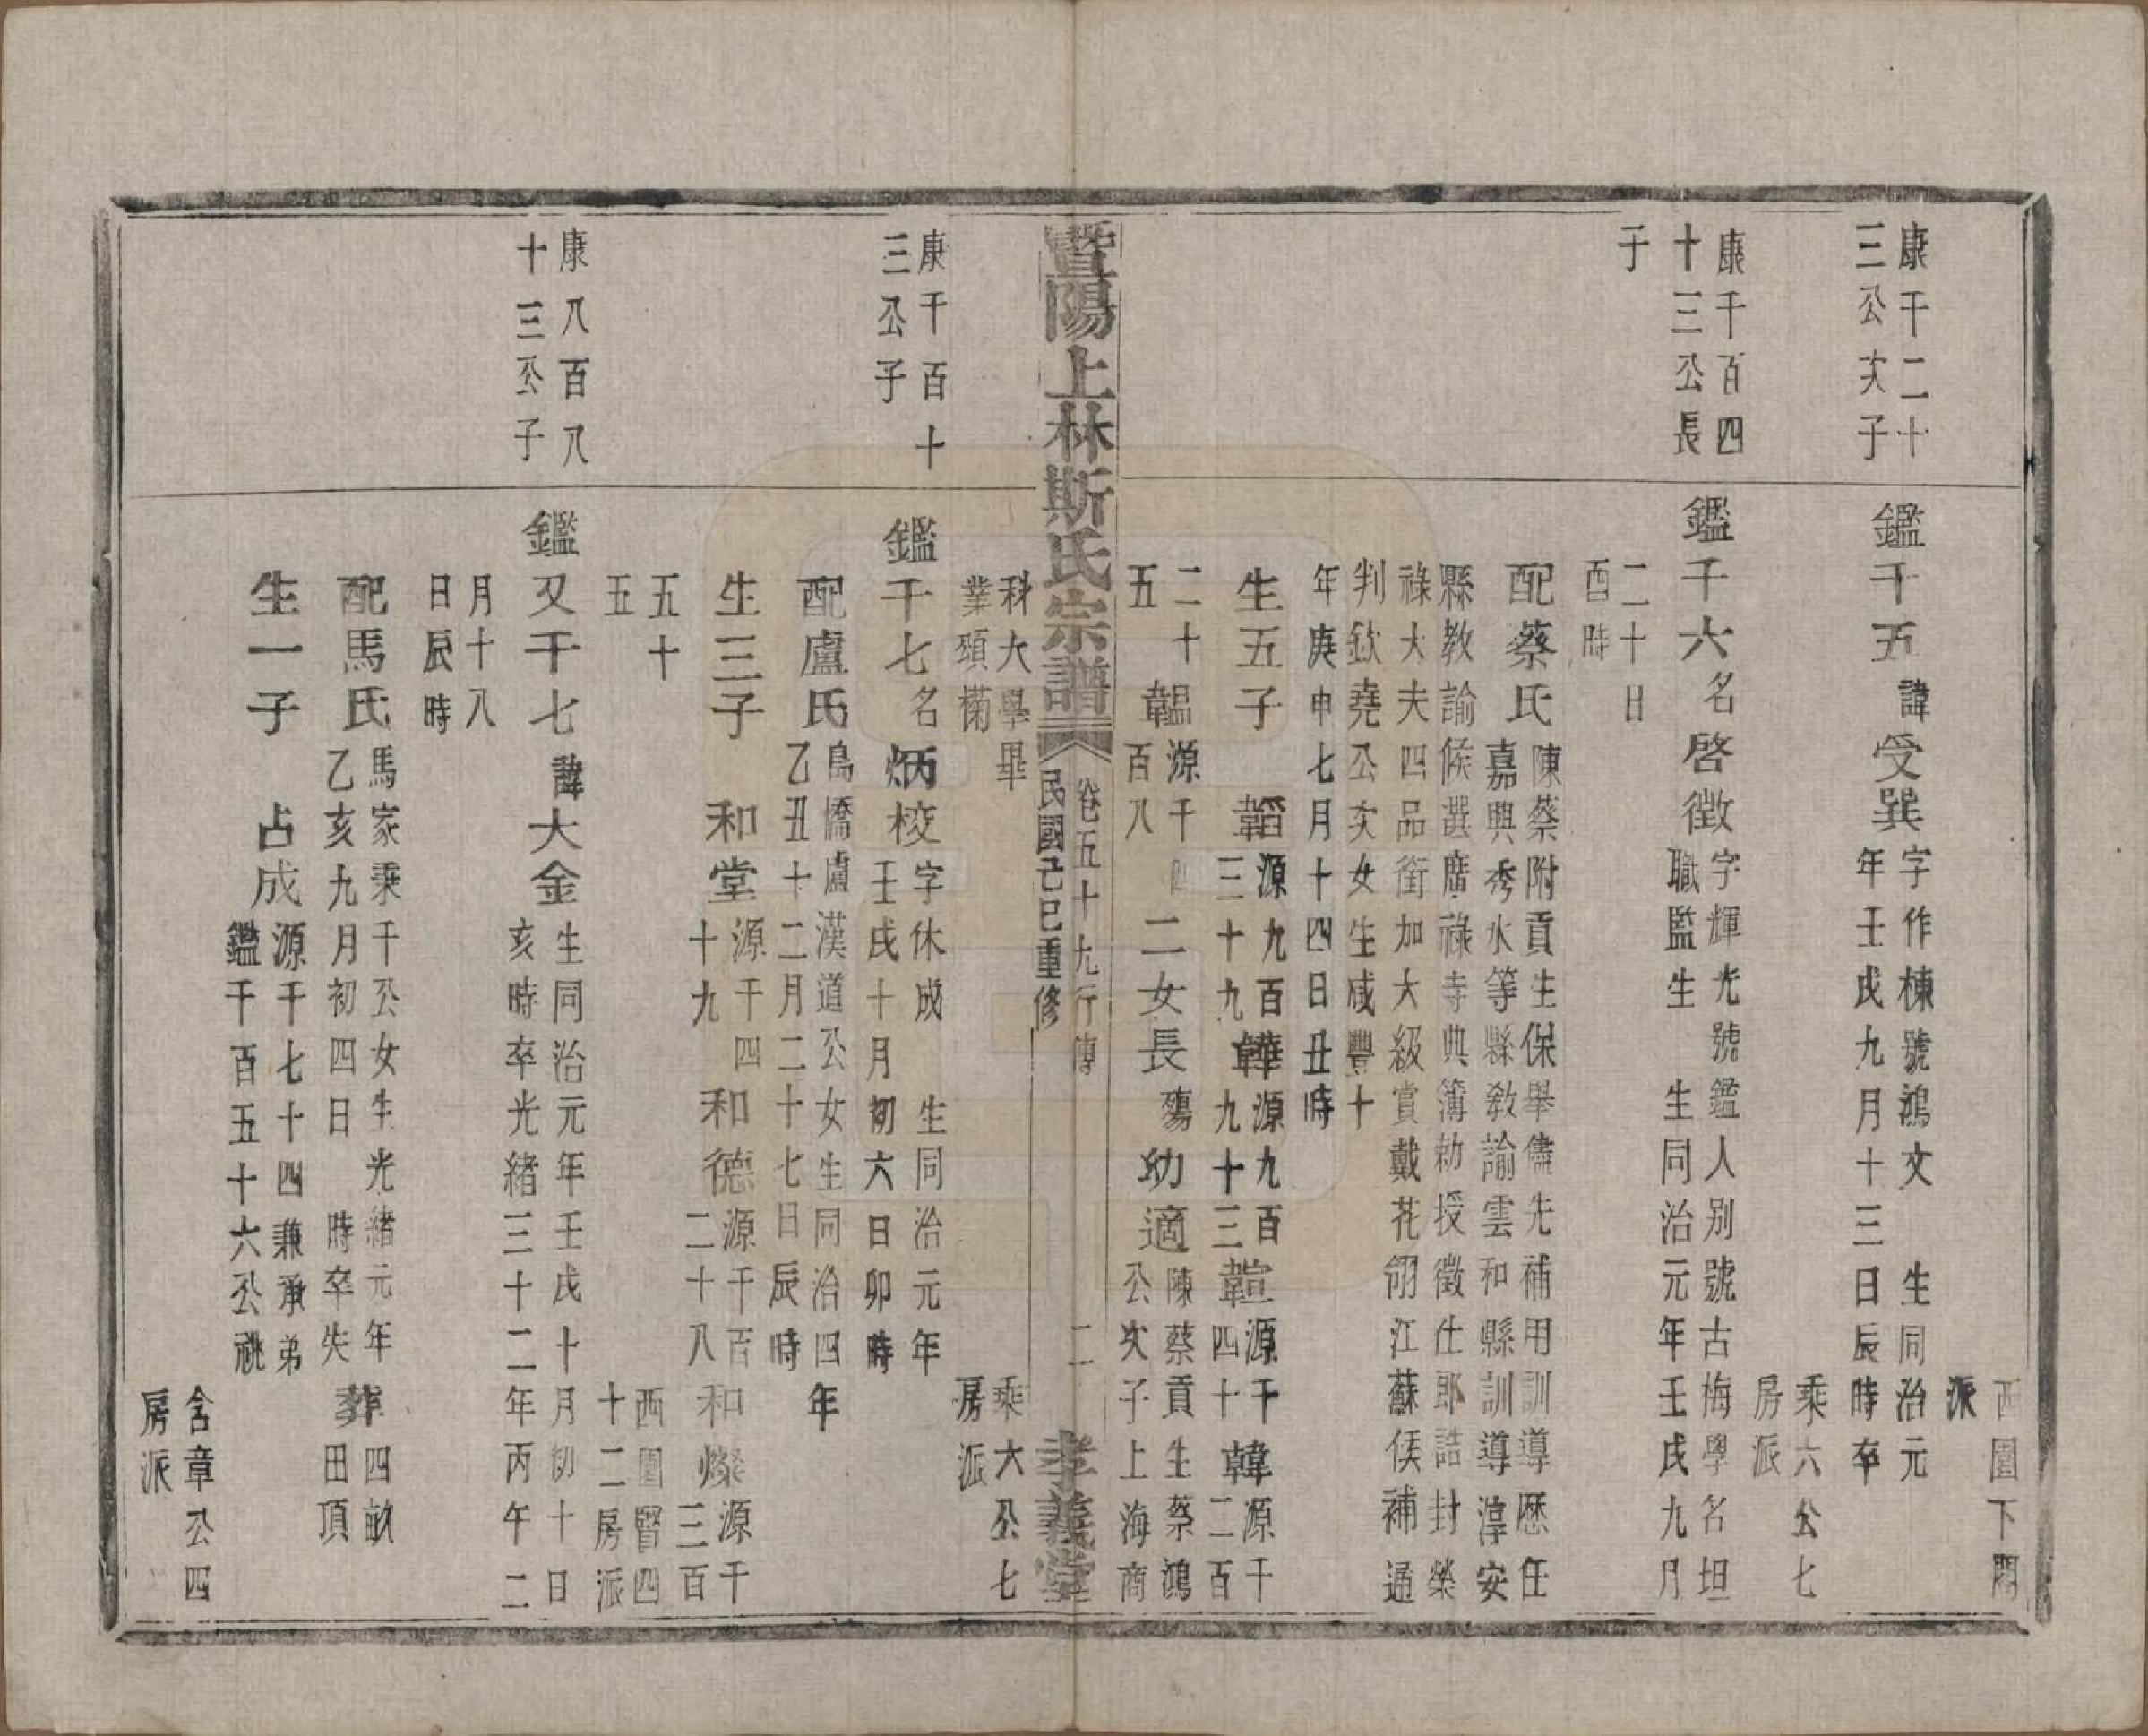 西園下閣
派
康千二十
三公次子
鑑千五諱受巽
字作棟號鴻文
生同治元
年壬戌九月十三日辰時卒
乘六公七
房派
康千百四
十三公長
子
鑑千六名啓徵
字輝光號鑑人別號古梅學名坦
職監生
生同治元年壬戌九月
二十日
酉時
配蔡氏
陳蔡附貢生保舉儘先補用訓導歷任
嘉興秀水等縣敎諭雲和縣訓導淳安
縣教諭候選廣祿寺典簿勅授徵仕郎誥封榮
祿大夫四品銜加大級賞戴花翎江蘇候補通
判欽堯公次女生咸豐十
年庚申七月十四日丑時
生五子
韜
源九百
三十九
韡
源九百
九十三
韹
源千
四十
韓
源千
二百
二十
五
韞
源千四
百八
二女長殤幼適
陳蔡貢生蔡鴻
公次子上海商
暨陽上林斯氏宗譜
卷五十九行傳
民國己巳重修
二
孝義堂
科大學畢
業頌蘭
乘大公七
房派
康千百十
三公子
鑑千七名炳校
字休成
生同治元年
壬戌十月初六日卯時
配盧氏
烏橋盧漢道公女生同治四年
乙丑十二月二十七日辰時
生三子
和堂
源千四
十九
和德
源千百
二十八
和燦
源千
三百
五十
五
西園豎四
十二房派
康八百八
十三公子
鑑又千七諱大金
生同治元年壬戌十月初十日
亥時卒光緒三十二年丙午二
月十八
日辰時
配馬氏
馬家乘千公女生光緒元年
乙亥九月初四日
時卒失
葬
四畝
田頂
生一子
占成
源千七十四兼承弟
鑑千百五十六公祧
含章公四
房派